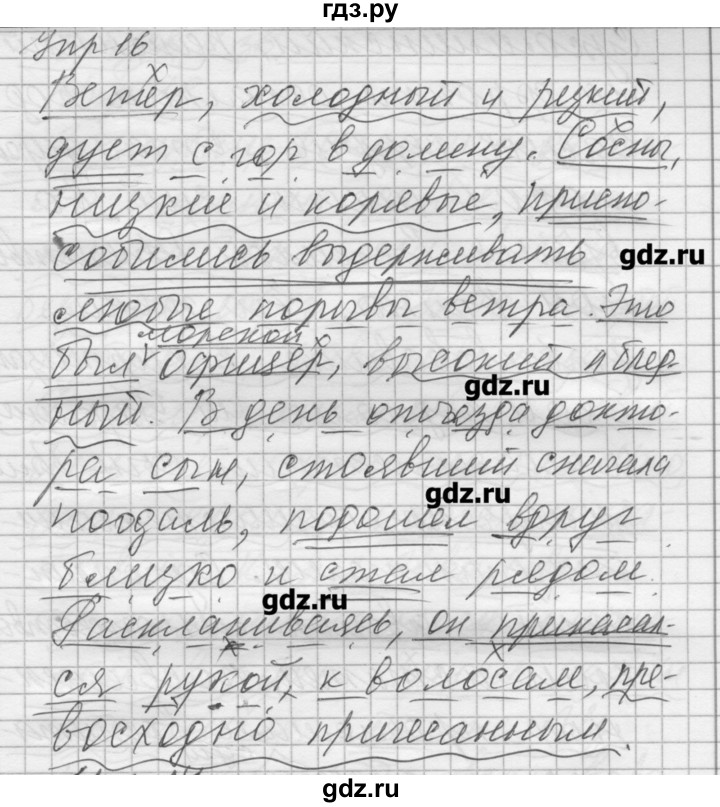 гдз.ру
Упр 16
Ветер, холодный и резкий,
дует с гор в долину. Сосны,
низкие и корявые, приспо-
собились выдерживать
gdz.ru
любые порывы ветра. Это
морской
был офицер, высокий и блед-
gdz.ru
ный. В день отъезда докто-
ра сын, стоявший сначала
gdz.ru
поодаль, подошел вдруг
близко и стал рядом.
gdz.ru
Раскланиваясь, он прикасал-
ся рукой к волосам, пре-
восходно причесанным.
gdz.ru